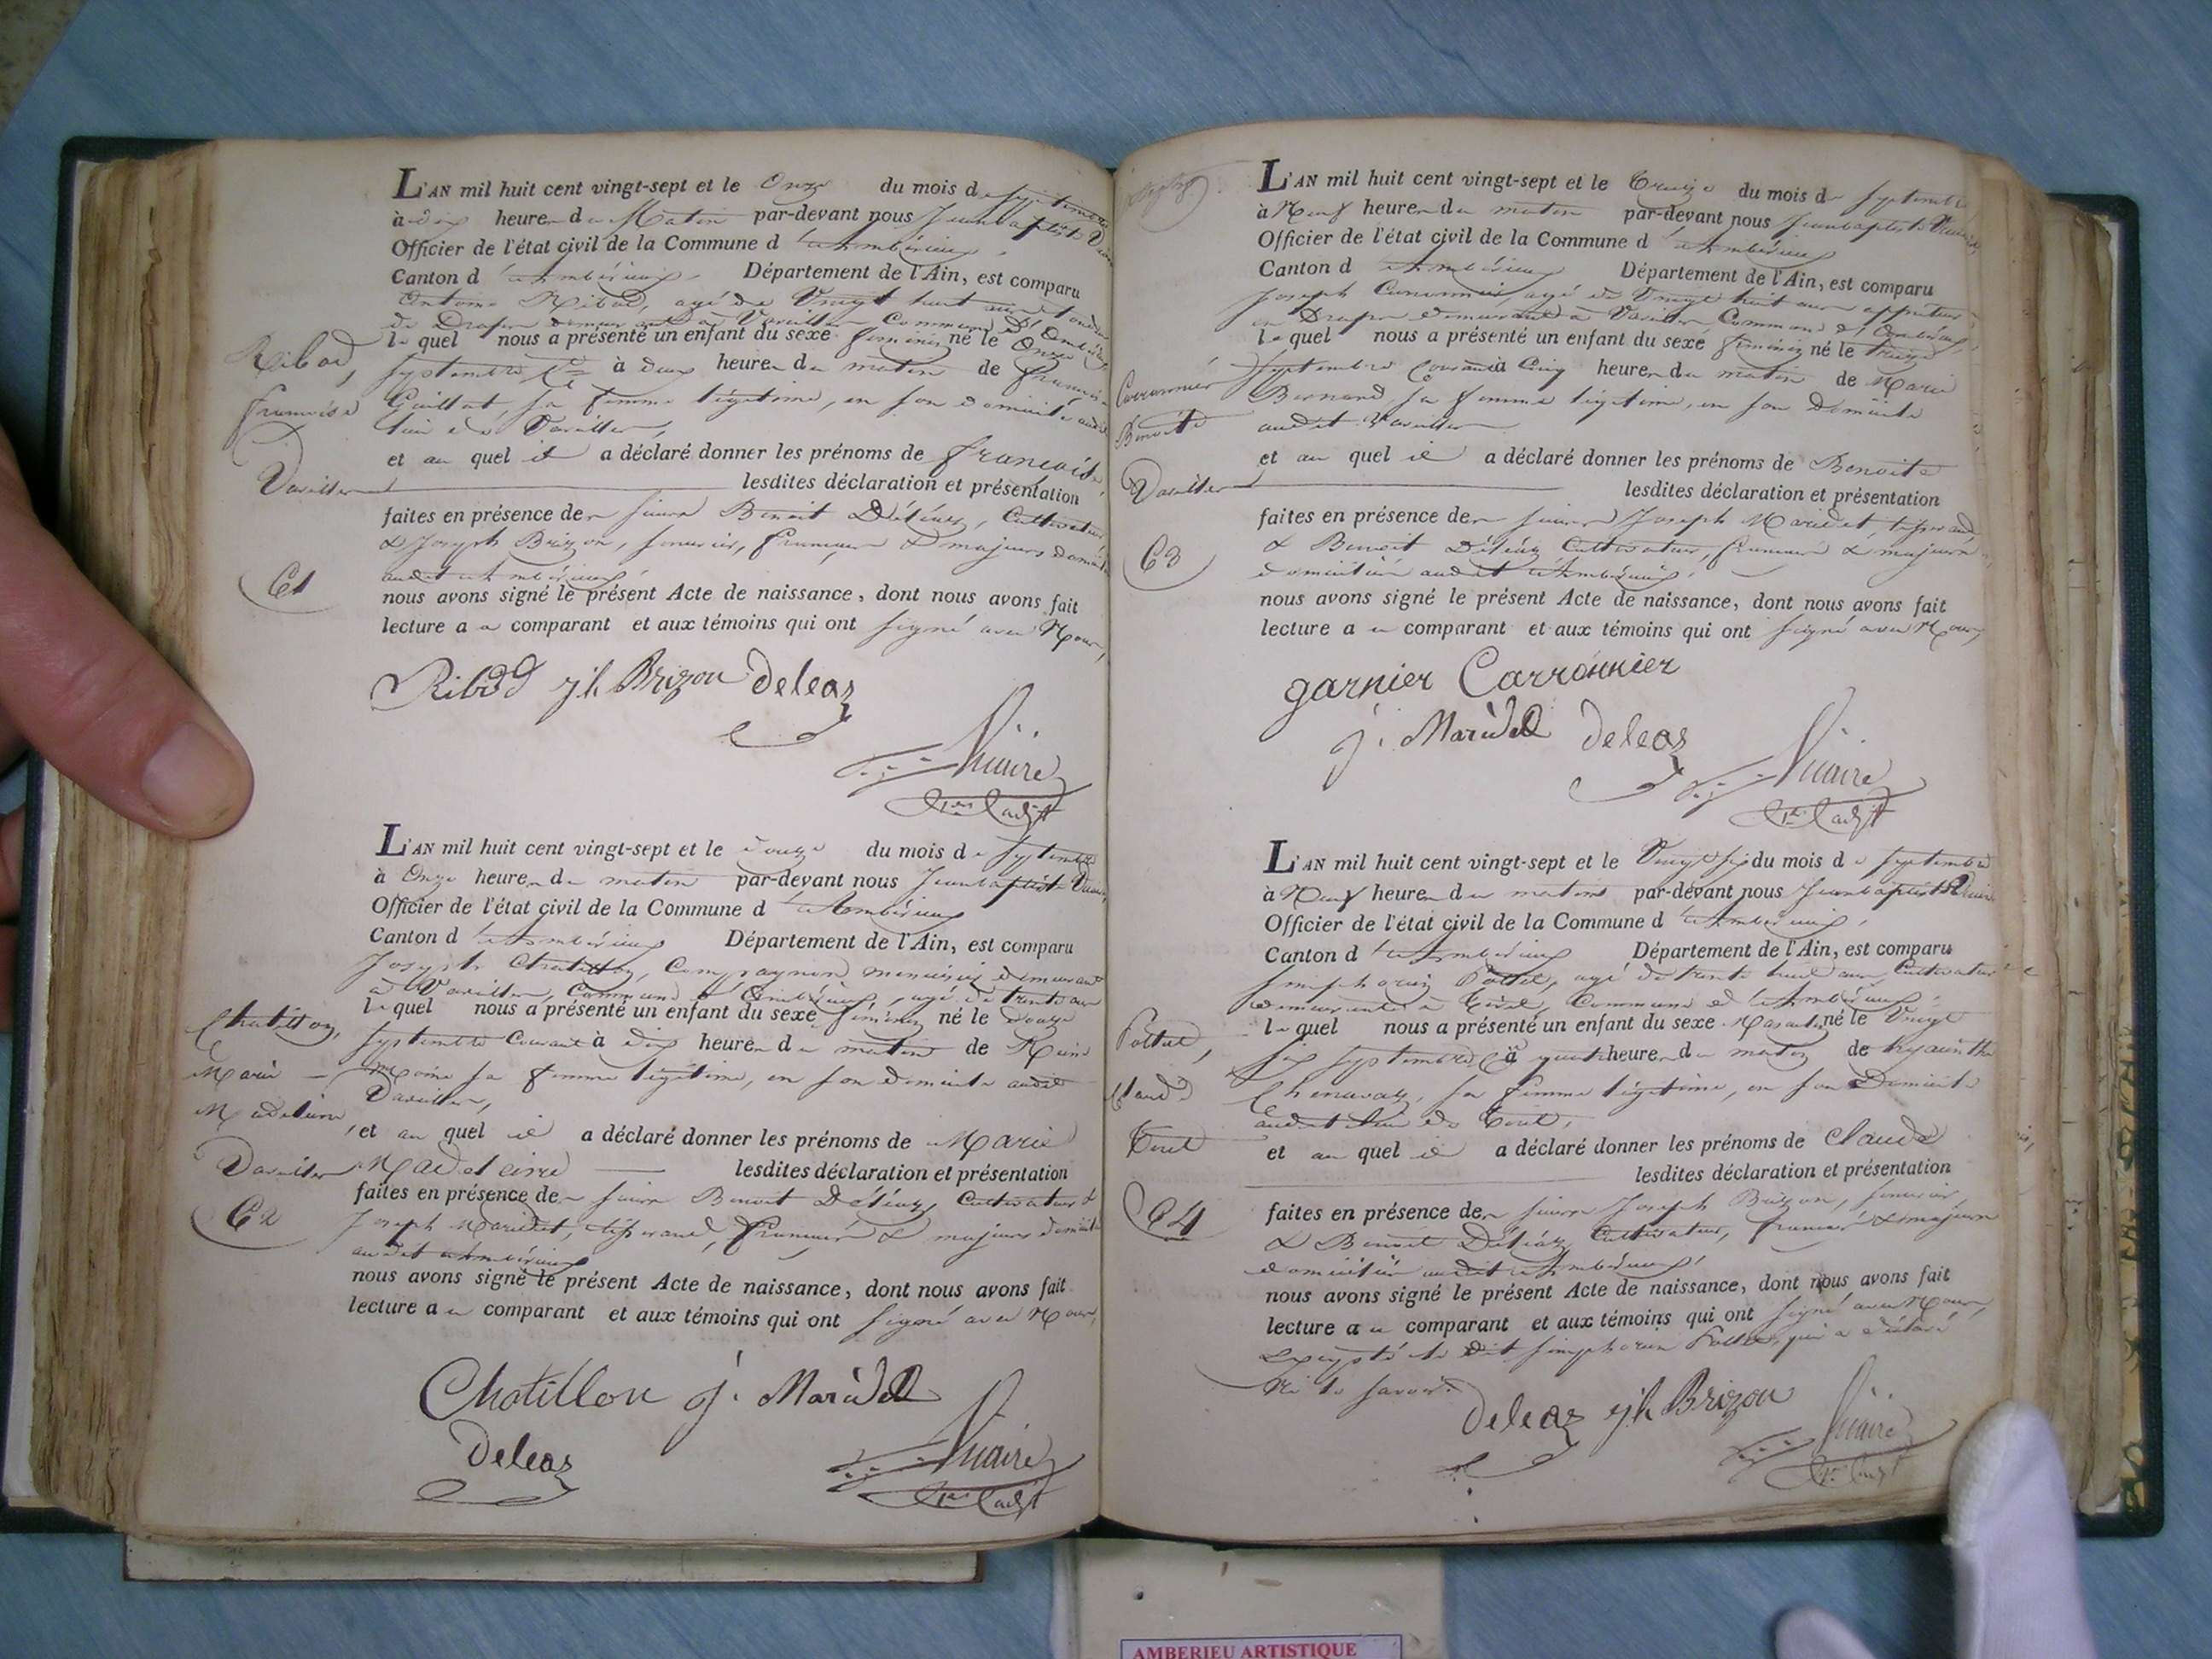 L'AN mil huit cent vingt-sept et le Onze du mois de septembre
à dix heures du Matin par-devant nous Jean baptiste
Officier de l'état civil de la Commune d'Ambérieux
Canton d'Ambérieux Département de l'Ain, est comparu
Antoine Ribod, agé de Vingt huit ans
de Drap demeurant à Vareilles Commune d'Ambérieux
lequel nous a présenté un enfant du sexe feminin né le Onze
septembre à deux heures du matin de françoise
Guillot, sa femme légitime, en son domicile audit
lieu de Vareilles,
et au quel il a déclaré donner les prénoms de françoise,
lesdites déclaration et présentation
faites en présence des sieurs Benoit Déléaz, Cultivateur
& Joseph Brizon, & majeurs
audit Ambérieux
nous avons signé le présent Acte de naissance, dont nous avons fait
lecture au comparant et aux témoins qui ont signé avec Nous,
Ribod
françoise
Vareilles
61
Ribod jh Brizon deleaz
Vicaire
L'AN mil huit cent vingt-sept et le douze du mois de septembre
à Onze heures du matin par-devant nous Jean baptiste
Officier de l'état civil de la Commune d'Ambérieux
Canton d'Ambérieux Département de l'Ain, est comparu
Joseph Chatillon, Compagnon menuisier demeurant
à Vareilles, Commune d'Ambérieux, agé de trente ans
lequel nous a présenté un enfant du sexe féminin né le douze
septembre Courant à dix heures du matin de Reine
Moine sa femme légitime, en son domicile audit
Vareilles,
et au quel il a déclaré donner les prénoms de Marie
Madeleine lesdites déclaration et présentation
faites en présence des sieurs Benoit Déléaz, Cultivateur &
Joseph Maridet, & majeurs
audit Ambérieux
nous avons signé le présent Acte de naissance, dont nous avons fait
lecture au comparant et aux témoins qui ont signé avec Nous,
Chatillon,
Marie
Madeleine,
Vareilles
62
Chatillon j. Maridet
deleaz
Vicaire
L'AN mil huit cent vingt-sept et le Treize du mois de septembre
à Neuf heures du matin par-devant nous Jean baptiste
Officier de l'état civil de la Commune d'Ambérieux
Canton d'Ambérieux Département de l'Ain, est comparu
Joseph Carronnier agé de Vingt huit ans
en Drap demeurant à Vareilles Commune d'Ambérieux,
lequel nous a présenté un enfant du sexe féminin né le treize
septembre Courant à Cinq heures du matin de Marie
Bernard, sa femme légitime, en son Domicile
audit Vareilles
et au quel il a déclaré donner les prénoms de Benoite
lesdites déclaration et présentation
faites en présence des sieurs Joseph Maridet
& Benoit Déléaz Cultivateur, & majeurs
domiciliés audit Ambérieux,
nous avons signé le présent Acte de naissance, dont nous avons fait
lecture au comparant et aux témoins qui ont signé avec Nous,
Carronnier
Benoite
Vareilles
63
garnier Carronnier
j. Maridet deleaz
Vicaire
L'AN mil huit cent vingt-sept et le Vingt six du mois de septembre
à Neuf heures du matin par-devant nous Jean baptiste
Officier de l'état civil de la Commune d'Ambérieux,
Canton d'Ambérieux Département de l'Ain, est comparu
agé de trente huit ans Cultivateur
demeurant à Tiret, Commune d'Ambérieux,
lequel nous a présenté un enfant du sexe Masculin né le Vingt
six septembre à quatre heures du matin de hyacinthe
Chenavaz, sa femme légitime, en son Domicile
audit lieu de Tiret,
et au quel il a déclaré donner les prénoms de Claude
lesdites déclaration et présentation
faites en présence des sieurs Joseph Brizon,
& Benoit Déléaz Cultivateur, & majeurs
domiciliés audit Ambérieux,
nous avons signé le présent Acte de naissance, dont nous avons fait
lecture au comparant et aux témoins qui ont signé avec Nous,
excepté le dit qui a déclaré
ne le savoir.
Claude
Tiret
64
deleaz jh Brizon
Vicaire
AMBERIEU ARTISTIQUE